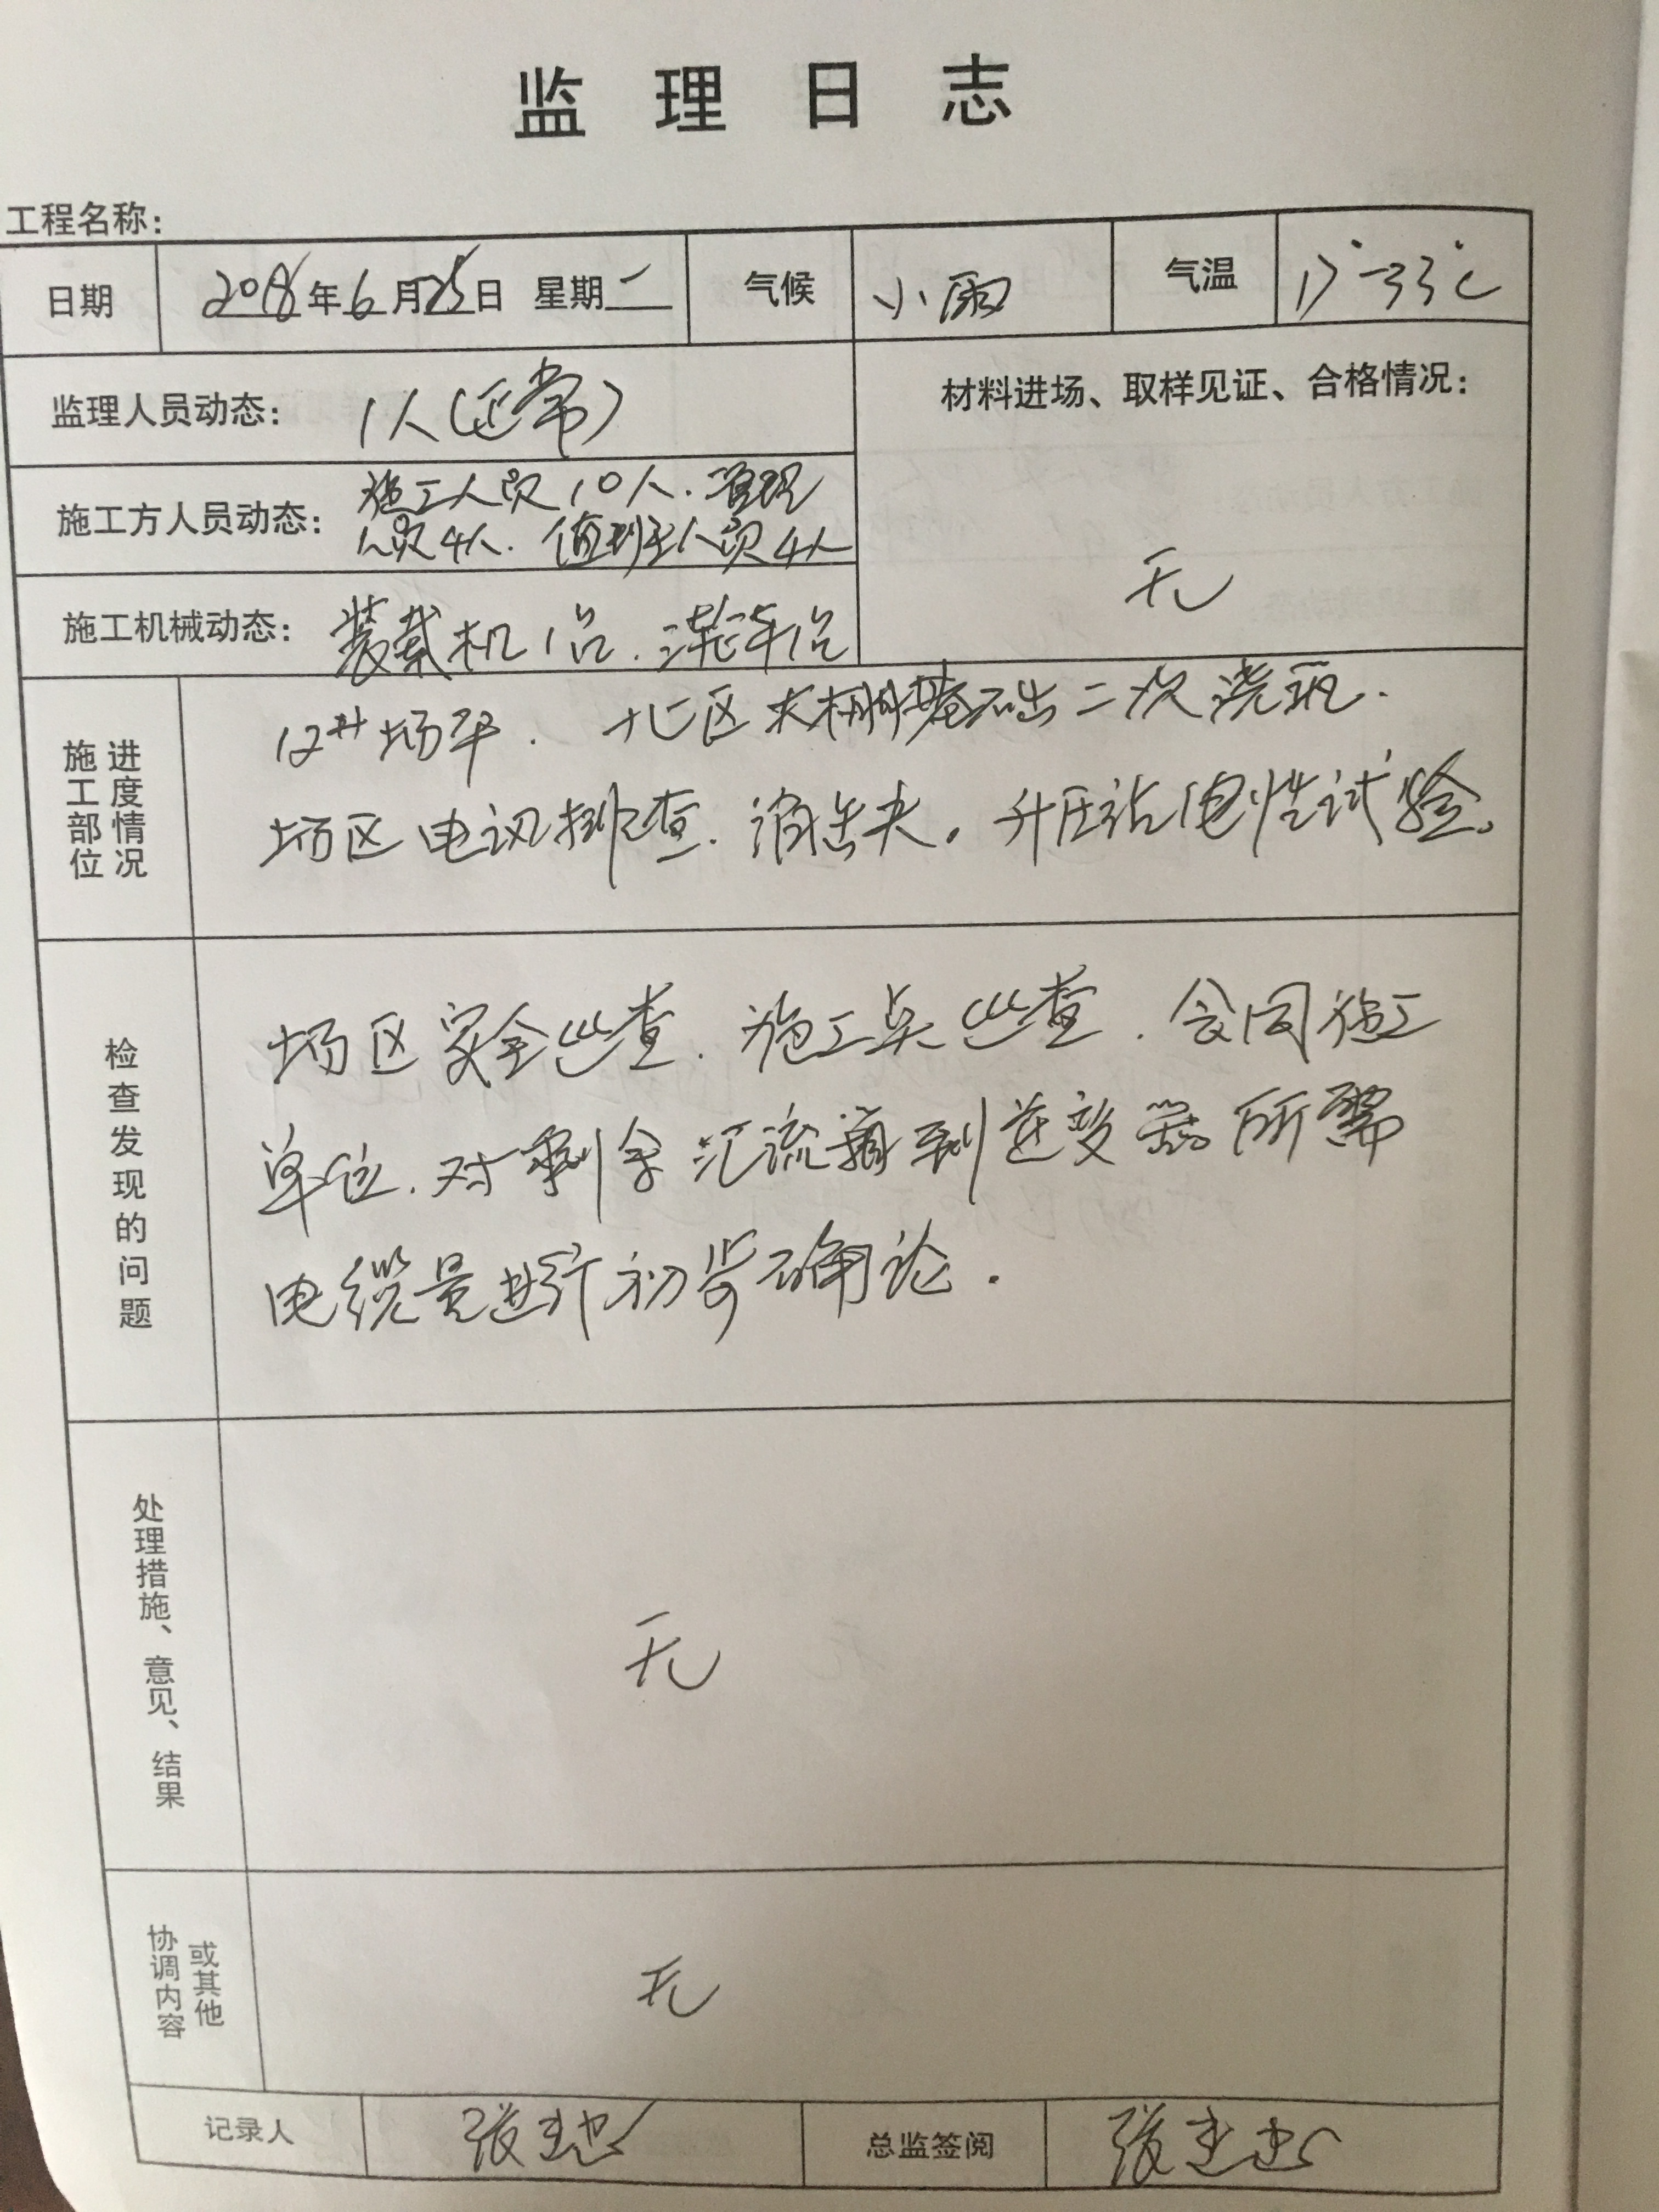 监理日志
工程名称：
日期 2018年6月25日 星期二 气候 小雨 气温 17°-33℃
监理人员动态： 1人（正常）
材料进场、取样见证、合格情况：
施工方人员动态： 施工人员10人．管理
人员4人．值班人员4人
无
施工机械动态： 装载机1台．
施工部位 进度情况
12#场平． 北区大棚基础二次浇筑．
场区电站排查．消缺。升压站电性试验。
检查发现的问题
场区安全巡查．施工点巡查．会同施工
单位．对剩余汇流箱到逆变器所需
电缆量进行初步确论．
处理措施、意见、结果
无
协调内容 或其他
无
记录人 张 总监签阅 张